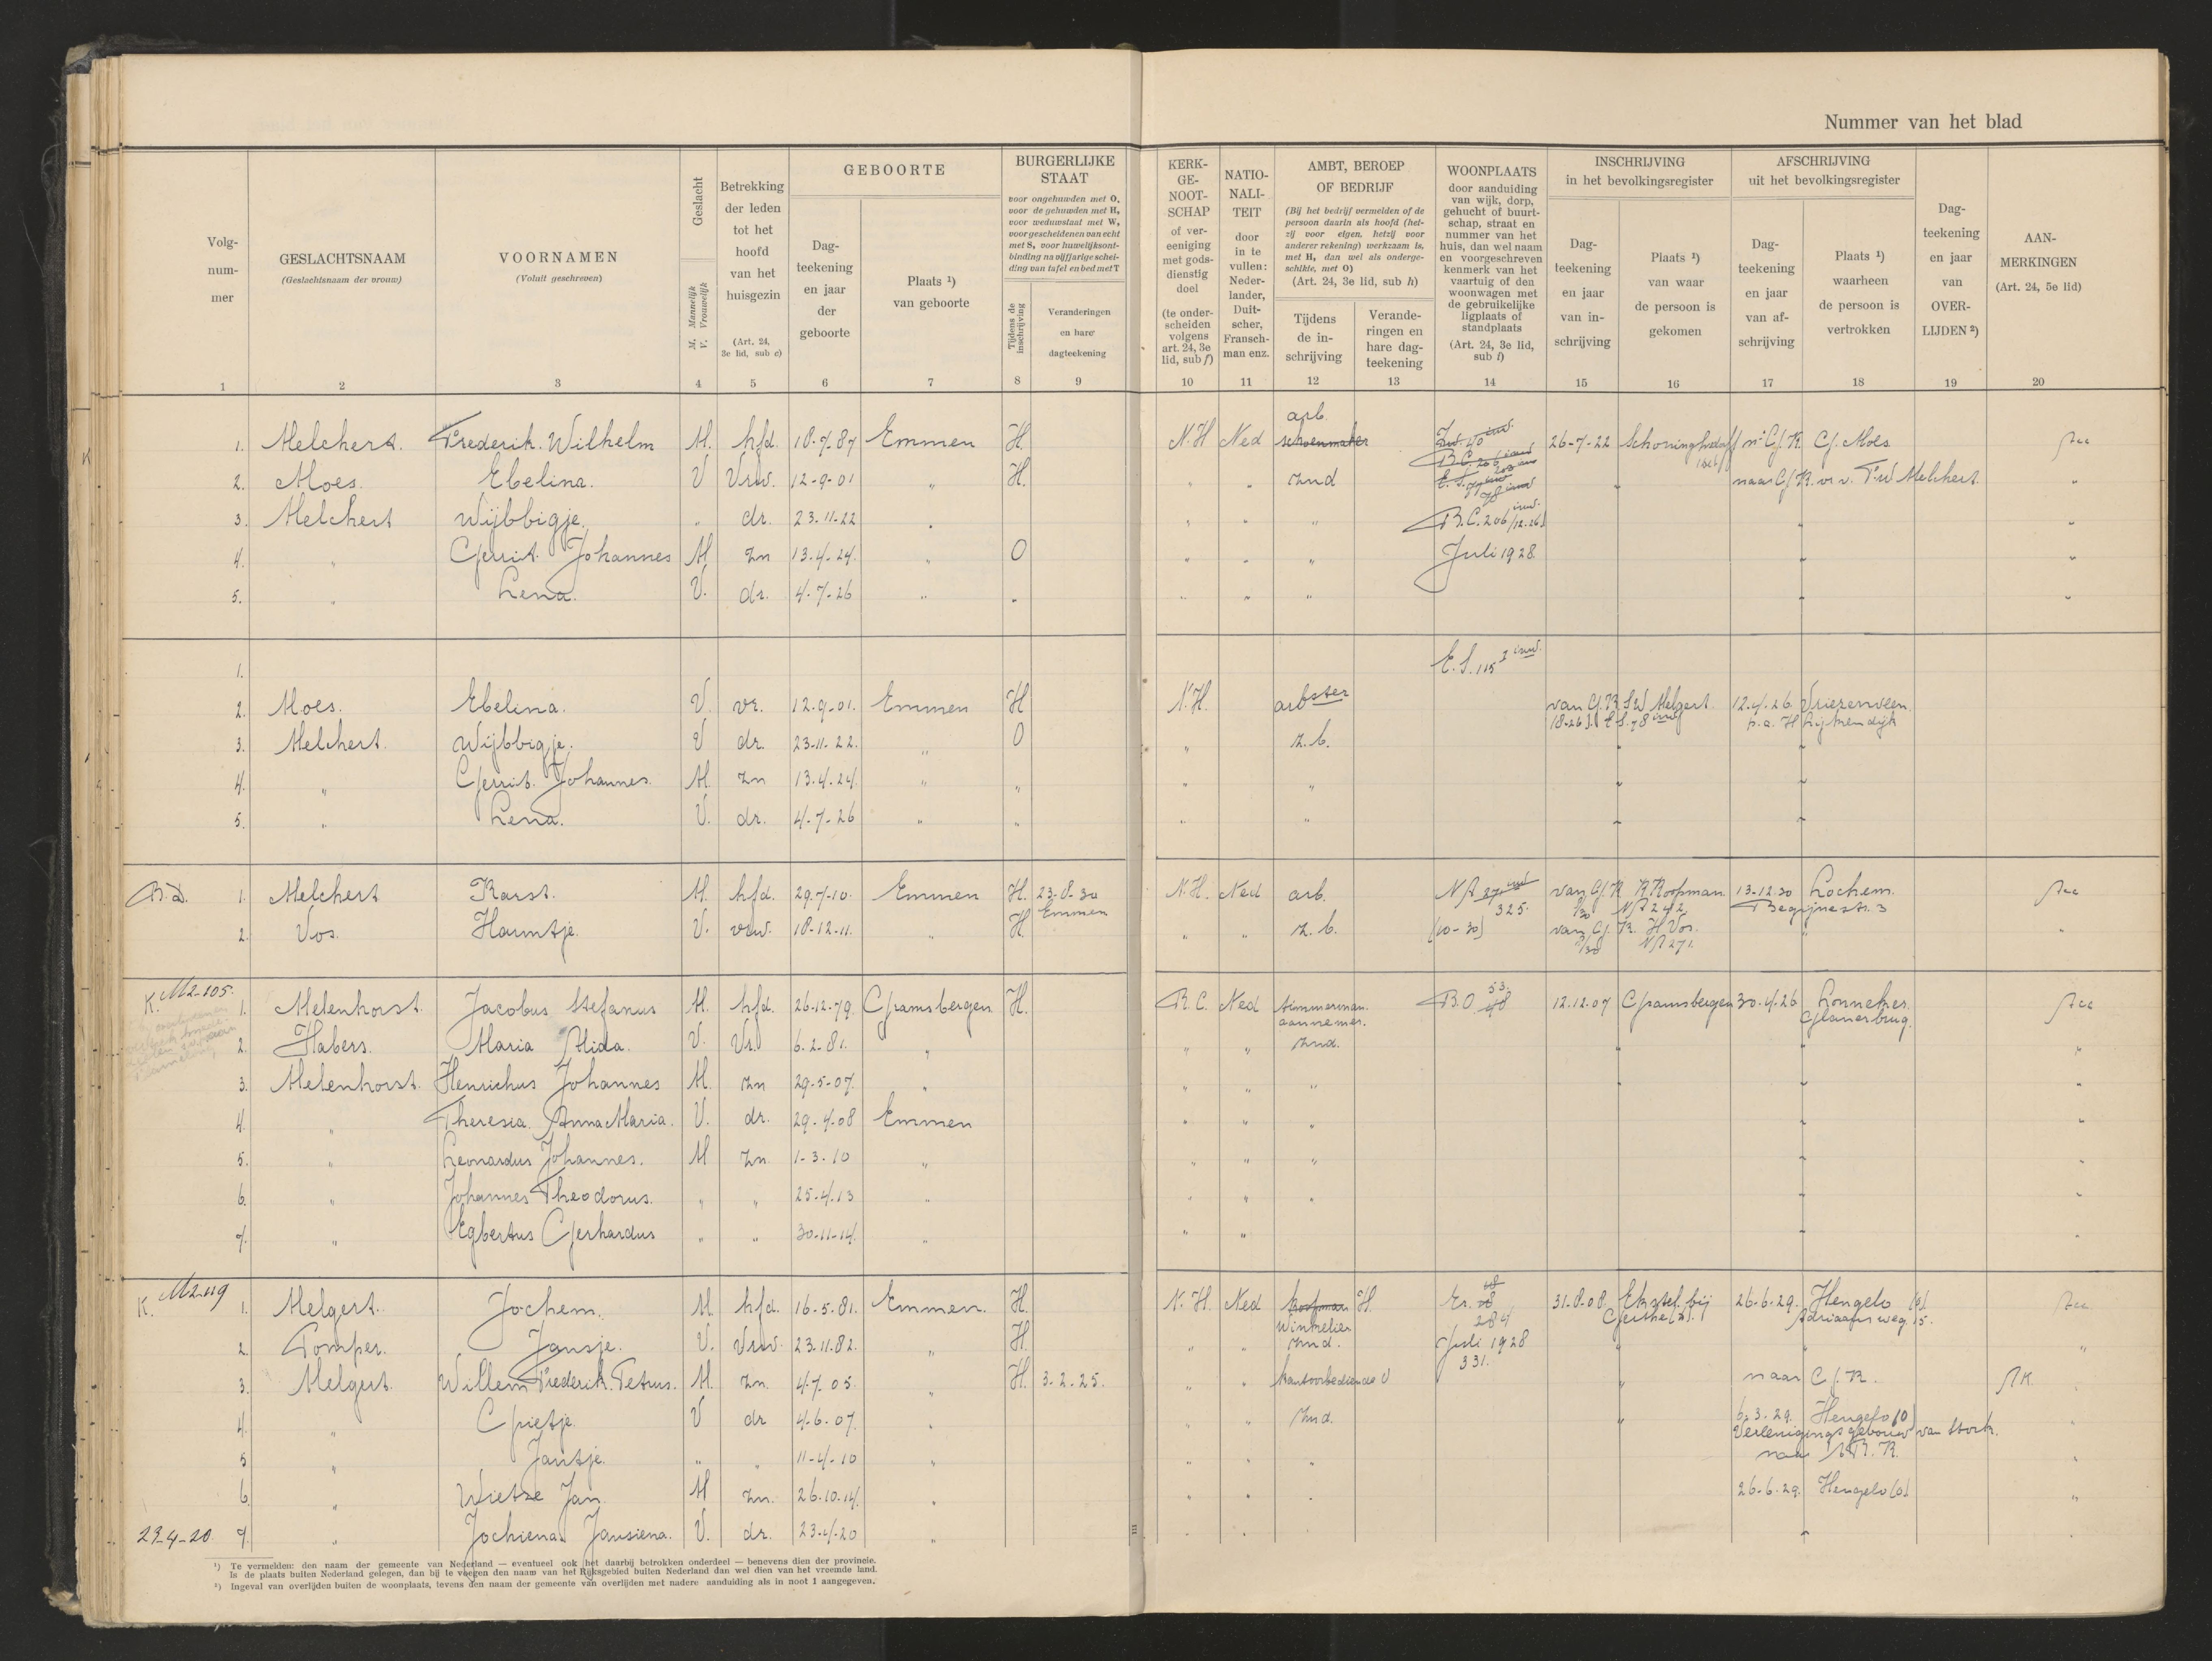 Nummer van het blad
Volg-
num-
mer
1
GESLACHTSNAAM
(Geslachtsnaam der vrouw)
2
VOORNAMEN
(Voluit geschreven)
3
Geslacht
M. Mannelijk
V. Vrouwelijk
4
Betrekking
der leden
tot het
hoofd
van het
huisgezin
(Art. 24,
3e lid, sub c)
5
GEBOORTE
Dag-
teekening
en jaar
der
geboorte
6
Plaats ¹)
van geboorte
7
BURGERLIJKE
STAAT
voor ongehuwden met O,
voor de gehuwden met H,
voor weduwstaat met W,
voor gescheidenen van echt
met S, voor huwelijksont-
binding na vijfjarige schei-
ding van tafel en bed met T
Tijdens de
inschrijving
8
Veranderingen
en hare
dagteekening
9
KERK-
GE-
NOOT-
SCHAP
of ver-
eeniging
met gods-
dienstig
doel
(te onder-
scheiden
volgens
art. 24, 3e
lid, sub f)
10
NATIO-
NALI-
TEIT
door
in te
vullen:
Neder-
lander,
Duit-
scher,
Fransch-
man enz.
11
AMBT, BEROEP
OF BEDRIJF
(Bij het bedrijf vermelden of de
persoon daarin als hoofd (het-
zij voor eigen, hetzij voor
anderer rekening) werkzaam is,
met H, dan wel als onderge-
schikte, met O)
(Art. 24, 3e lid, sub h)
Tijdens
de in-
schrijving
12
Verande-
ringen en
hare dag-
teekening
13
WOONPLAATS
door aanduiding
van wijk, dorp,
gehucht of buurt-
schap, straat en
nummer van het
huis, dan wel naam
en voorgeschreven
kenmerk van het
vaartuig of den
woonwagen met
de gebruikelijke
ligplaats of
standplaats
(Art. 24, 3e lid,
sub i)
14
INSCHRIJVING
in het bevolkingsregister
Dag-
teekening
en jaar
van in-
schrijving
15
Plaats ¹)
van waar
de persoon is
gekomen
16
AFSCHRIJVING
uit het bevolkingsregister
Dag-
teekening
en jaar
van af-
schrijving
17
Plaats ¹)
waarheen
de persoon is
vertrokken
18
Dag-
teekening
en jaar
van
OVER-
LIJDEN ²)
19
AAN-
MERKINGEN
(Art. 24, 5e lid)
20
arb.
1. Melchert. Frederik. Wilhelm M. hfd. 18-7-87 Emmen H. N.H Ned schoenmaker 26-7-22 n. G.K. G. Moes
2. Moes. Ebelina. V Vrw. 12-9-01 " H. " " znd naar G.K. v. F.W Melchert "
3. Melchert Wijbbigje. " dr. 23-11-22 " " " " B.C. 206 inw. [12.26] " "
4. " Gerrit Johannes M zn 13-4-24. " O " " " Juli 1928. " "
5. " Lena. V. dr. 4-7-26 " " " " " " "
1. E.S. 115
2. Moes. Ebelina. V. vr. 12-9-01. Emmen H N.H. arbster van G.K F.W Melgert. 12.4.26 Vriezenveen.
3. Melchert. Wijbbigje. V dr. 23-11-22. " O " z.b. " "
4. " Gerrit Johannes. M. zn 13-4-24. " " " " " "
5. " Lena. V. dr. 4-7-26 " " " " " "
B.D. 1. Melchert Karst. M. hfd. 29.7-10. Emmen H. 23-8-30 N.H. Ned arb. van G.K K.Koopman 13-12.30 Lochem.
Emmen 325. N.A 242 Begijnestr. 3
2. Vos. Harmtje. V. vrw. 18-12-11. " H. " " z.b. [10-30] van G.K. H Vos. " "
271
K. M2-105.
1. Melenhorst. Jacobus Stefanus M. hfd. 26-12-79. Gramsbergen. H. R.C. Ned timmerman. B.O. 48 53. 12.12.07 Gramsbergen 30-4-26 Lonneker.
aannemer. Glanerbrug.
2. Habers. Maria Alida. V. Vr. 6-2-81. " " " znd. " " "
3. Melenhorst. Henrichus Johannes M. zn 29-5-07. " " " " " " "
4. " Theresia Anna Maria. V. dr. 29-4-08 Emmen " " " " "
5. " Leonardus Johannes. M zn. 1-3-10 " " " " " "
6. " Johannes Theodorus. " " 25-4-13 " " " " " "
7. " Egbertus Gerhardus " " 30-11-14. " " " " "
K. M2-119
1. Melgert. Jochem. M. hfd. 16-5-81. Emmen. H. N.H. Ned koopman H. Er. 284 31-8-08 26-6-29. Hengelo (O)
Winkelier Adriaansweg 5.
2. Pomper. Jansje. V. Vrw. 23.11.82. " H. " " znd. Juli 1928 " " "
331.
3. Melgert. Willem Frederik. Petrus. M. zn. 4-7-05. " H. 3-2-25. " " kantoorbediende O " naar G.K. AK
4. " Grietje. V dr 4-6-07. " " " znd. " 6-3-29. Hengelo (O) "
Vereenigingsgebouw van Stork.
5 " Jantje. " " 11-4-10 " " " " naar "
6. " Wietze Jan. M zn. 26-10-14. " " " " 26-6-29. Hengelo (O) "
23-4-20 7. " Jochiena Jansiena. V. dr. 23-4-20 " " " " "
¹) Te vermelden: den naam der gemeente van Nederland — eventueel ook het daarbij betrokken onderdeel — benevens dien der provincie.
Is de plaats buiten Nederland gelegen, dan bij te voegen den naam van het Rijksgebied buiten Nederland dan wel dien van het vreemde land.
²) Ingeval van overlijden buiten de woonplaats, tevens den naam der gemeente van overlijden met nadere aanduiding als in noot 1 aangegeven.
III